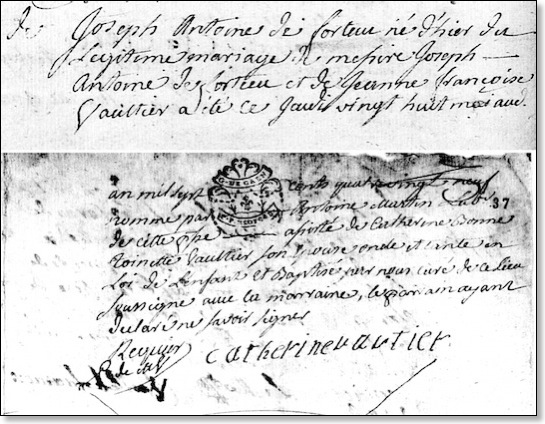 de Joseph Antoine de forteu né d'hier du
Legitime mariage de messire Joseph
Antoine de forteu et de Jeanne françoise
Vaultier a été ce Jeudi vingt huit mai aud.
an mil sept cents quatre vingt neuf
nommé par Antoine
de cette assisté de Catherine
Toinette Vaultier son Epouse oncle et tante en
Loi de L'enfant et Baptisé par nous curé de ce lieu
soussigné avec la marraine, le parrain ayant
declaré ne savoir signer
37
Catherine vautier